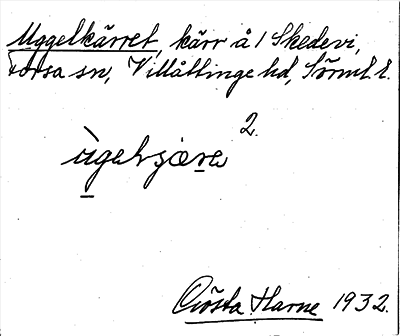 Uggelkärret, kärr å 1 Skedevi,
Torsa sn, Villåttinge hd, Sörml. l.
2.
Gösta Harne 1932.